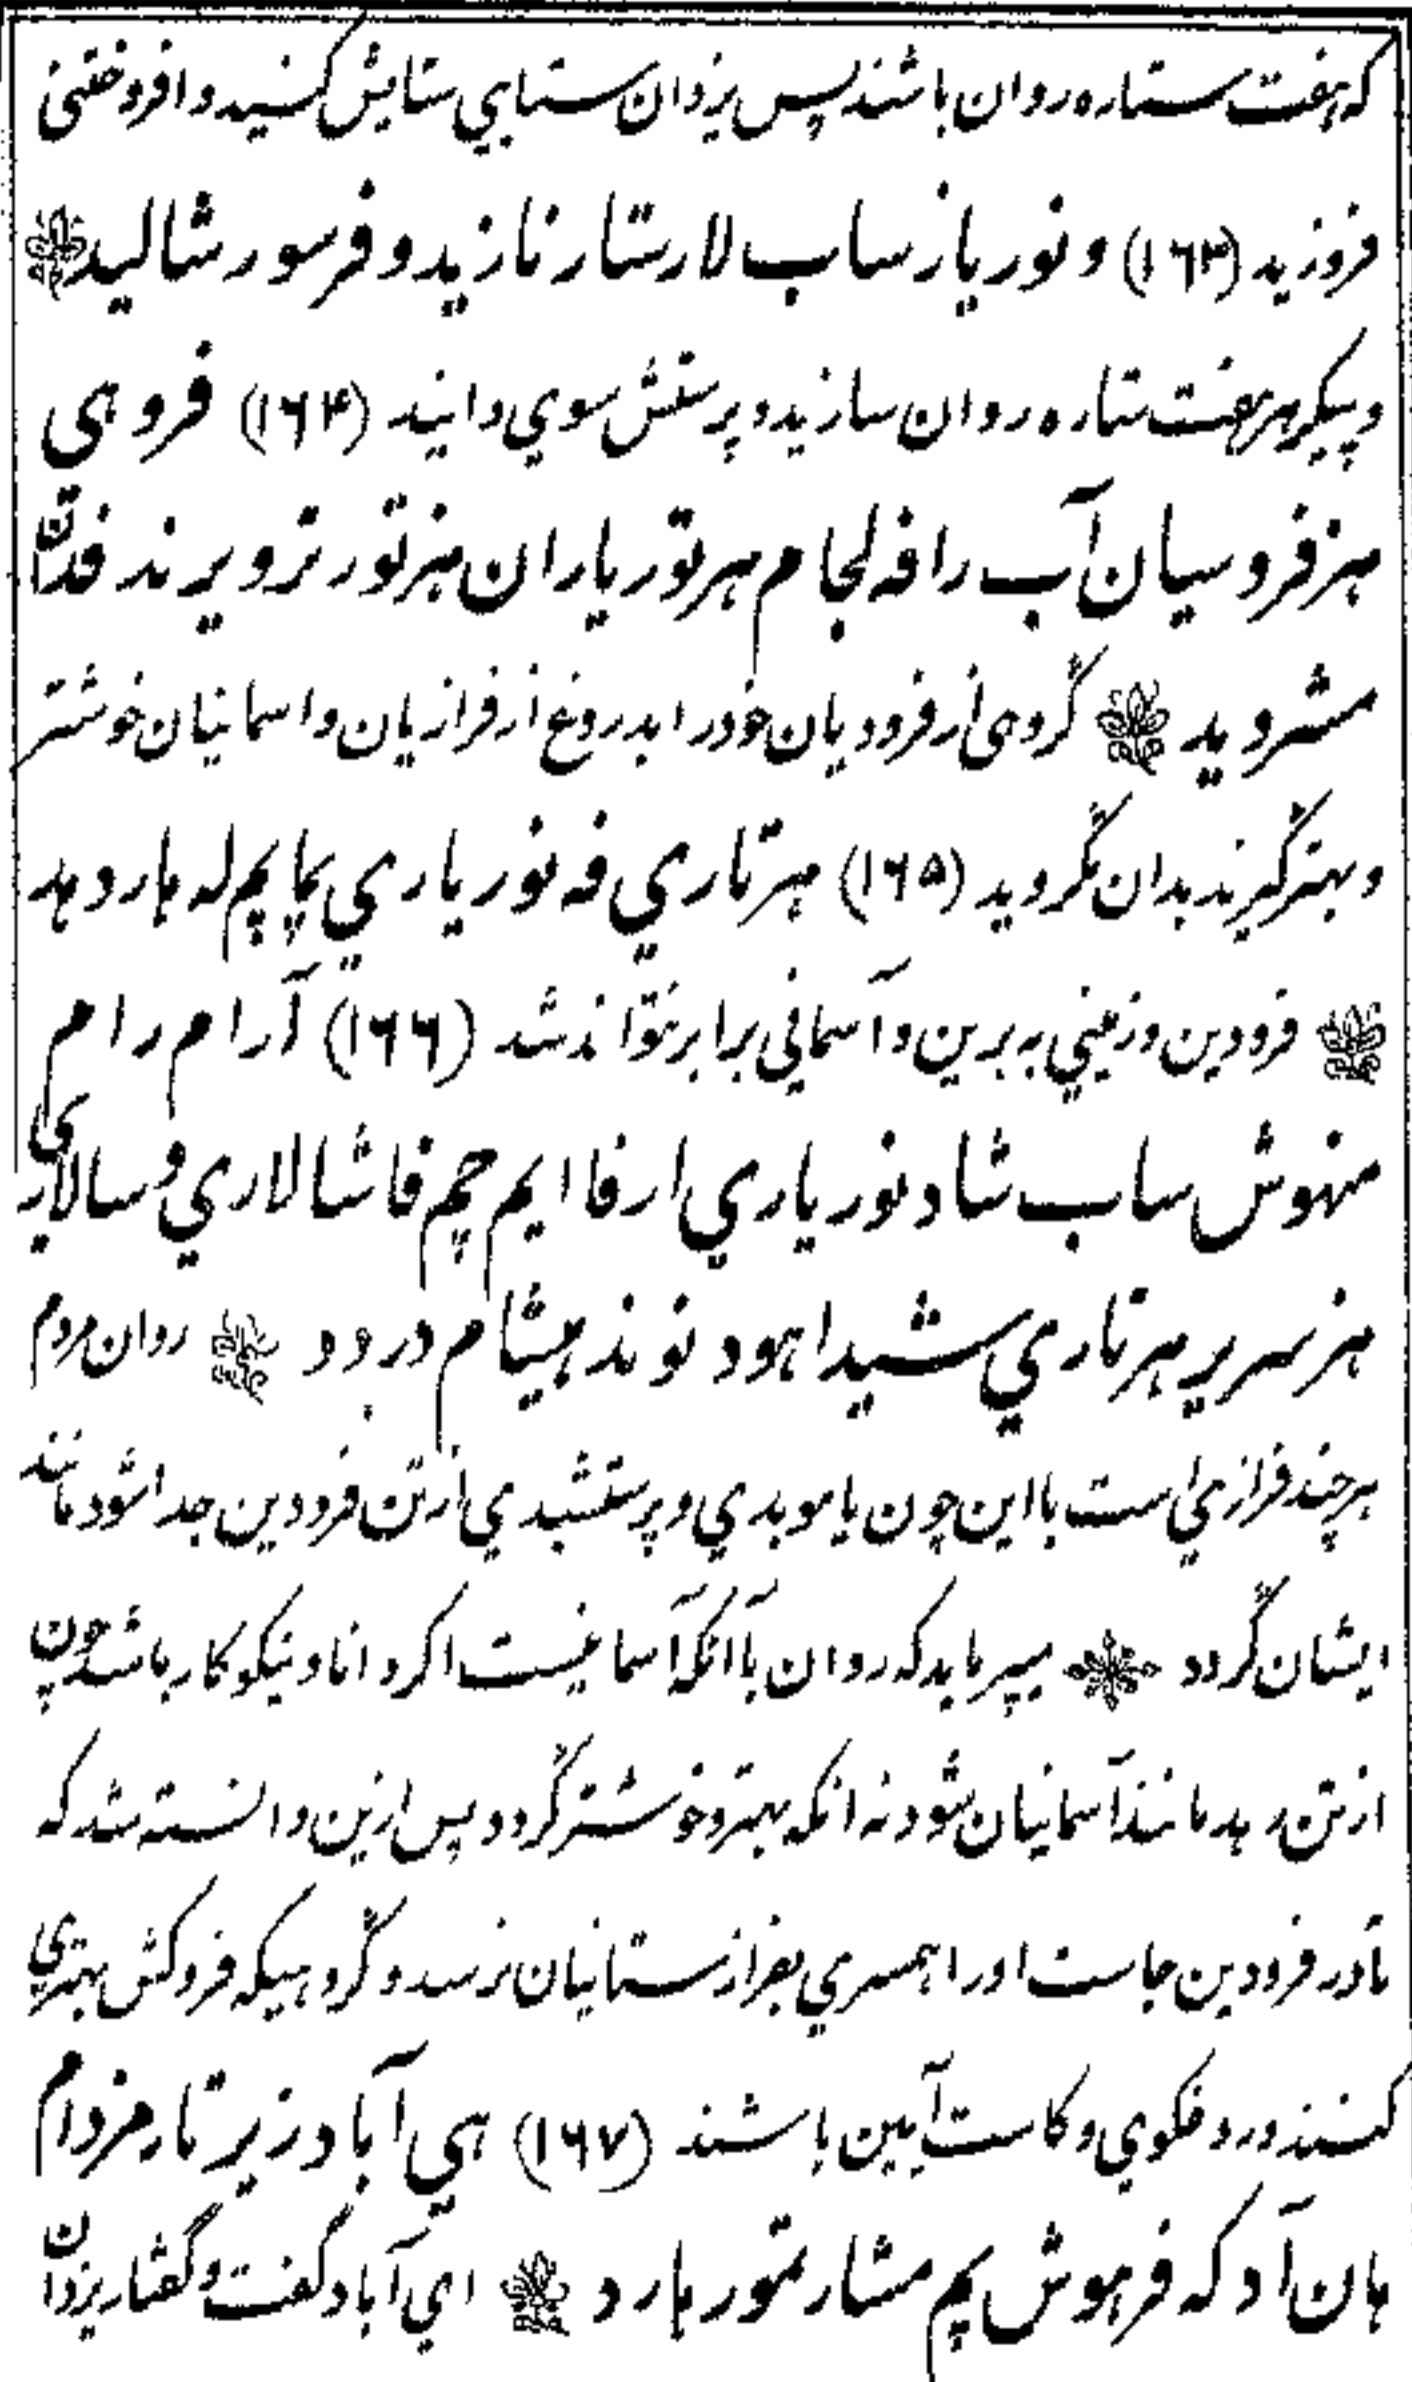 که هفت ستاره روان باشند پس یزدان ستایي ستایش کنید و افروختنی
فروزید (۱۶۳) و نوریاز ساب لارستار نازید و فرسور شالید
و پیکر هر هفت ستاره روان سازید و پرستش سوي دانید (۱۶۴) فروهی
هنز فروسیان آب را فه لجام هرتوریاران هنرتور تزویرند فدتان
مشروید گروهی از فرودیان خود را بدروغ از فرازیان و اسمانیان خوشتر
و بهتر گیرند بدان نگروید (۱۶۵) هرتاري فه نوریاري پچاپم له هارد هد
فرودین و زمیني به برین و آسمانی برابر نتواند شد (۱۶۶) آرام رام
منهوش ساب شاد نوریاري ارفا ایم چم فا شالاري و سالاري
هنز سریر هرتاري شیدا هود نوند هیشام دردود روان مردم
هر چند فرازي است با این چون با موبدي و پرستشبدي از تن فرودین جدا شود مانند
ایشان گردد میپرماید که روان با آنکه آسمانیست اگر دانا و نیکوکار باشد چون
از تن رهد مانند آسمانیان شود نه انکه بهتر و خوشتر گردد پس ازین دانسته شد که
تا در فرودین جاست او را همسري بفرازستانیان نرسد و گروهیکه فروکش بهتري
کنند دروغگوي و کاست آیین باشند (۱۶۷) هي آباد زیرتار مزدام
هان آد که فرهوش پم مشار تمور هارد اي آباد گفت و گفتار یزدان